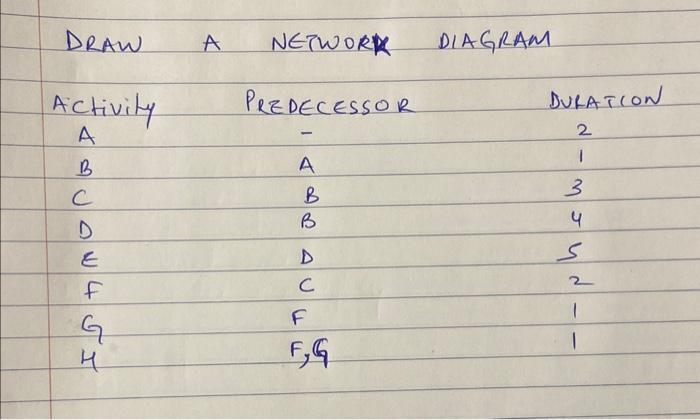 DRAW A NETWORK DIAGRAM
Activity PREDECESSOR DURATION
A - 2
B A 1
C B 3
D B 4
E D 5
F C 2
G F 1
H F,G 1